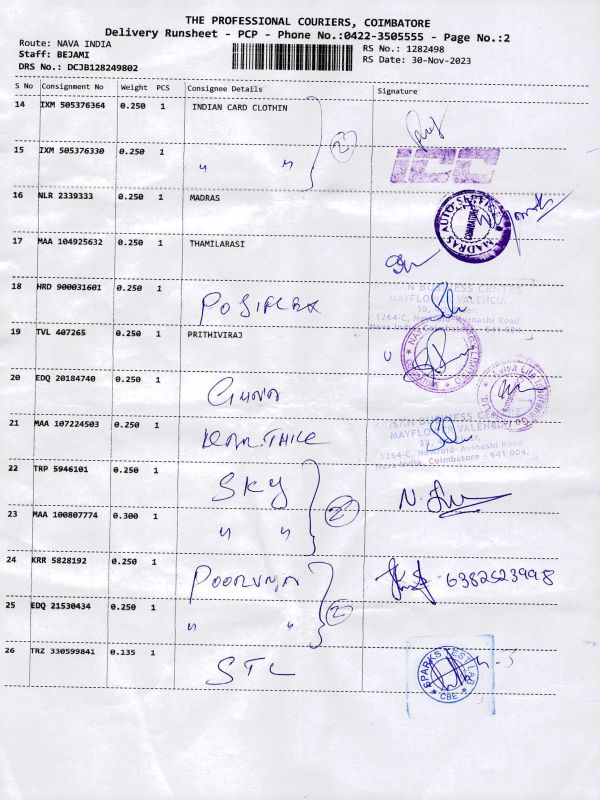 THE PROFESSIONAL COURIERS, COIMBATORE
Delivery Runsheet - PCP - Phone No.:0422-3505555 - Page No.:2
Route: NAVA INDIA RS No.: 1282498
Staff: BEJAMI RS Date: 30-Nov-2023
DRS No.: DCJB128249802
S No Consignment No Weight PCS Consignee Details Signature
14 IXM 505376364 0.250 1 INDIAN CARD CLOTHIN
2
15 IXM 505376330 0.250 1 " "
ICC
16 NLR 2339333 0.250 1 MADRAS
MADRAS AUTO SERVICE
17 MAA 104925632 0.250 1 THAMILARASI
18 HRD 900031601 0.250 1
BUSINESS CENTRE
MAYFLOWER VALENCIA
1264-C, New/old- Avinashi Road
Nava India, Coimbatore - 641 004.
19 TVL 407265 0.250 1 PRITHIVIRAJ
20 EDQ 20184740 0.250 1 GUNA
Aviva Life Insurance
21 MAA 107224503 0.250 1 KARTHICK
BUSINESS CENTRE
MAYFLOWER VALENCIA
1264-C, New/old- Avinashi Road
Nava-India, Coimbatore - 641 004.
22 TRP 5946101 0.250 1 SKY
2
23 MAA 100807774 0.300 1 " "
24 KRR 5828192 0.250 1 POORVIKA 6382523998
2
25 EDQ 21530434 0.250 1 " "
26 TRZ 330599841 0.135 1 STL
SPARKS TEST LAB
CBE